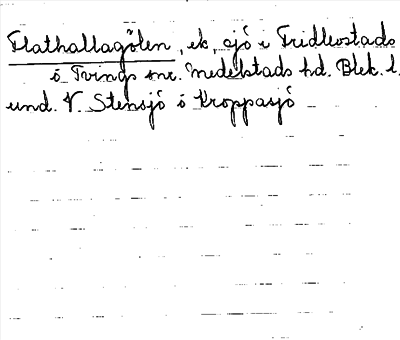 Flathallagölen, ek, sjö i Fridlevstads
ö Tvings snr. Medelstads hd. Blek. l.
und. V. Stensjö ö Kroppasjö